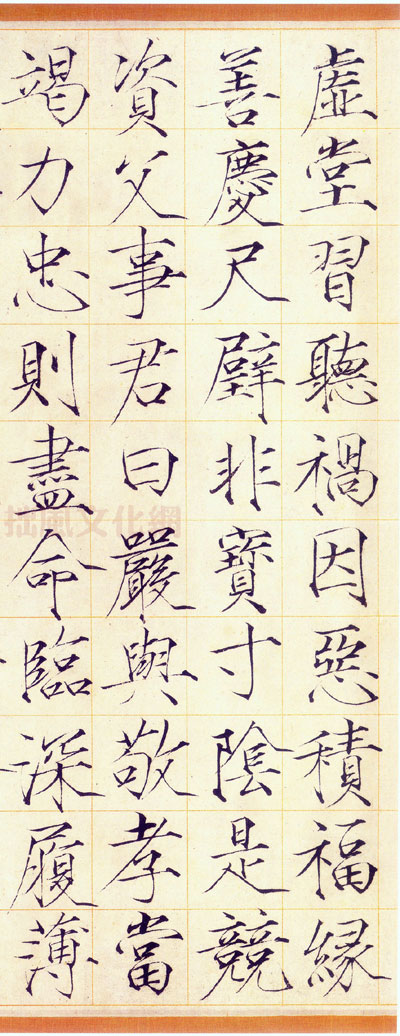 虛堂習聽禍因惡積福緣
善慶尺璧非寶寸陰是競
資父事君曰嚴與敬孝當
竭力忠則盡命臨深履薄
拙風文化網